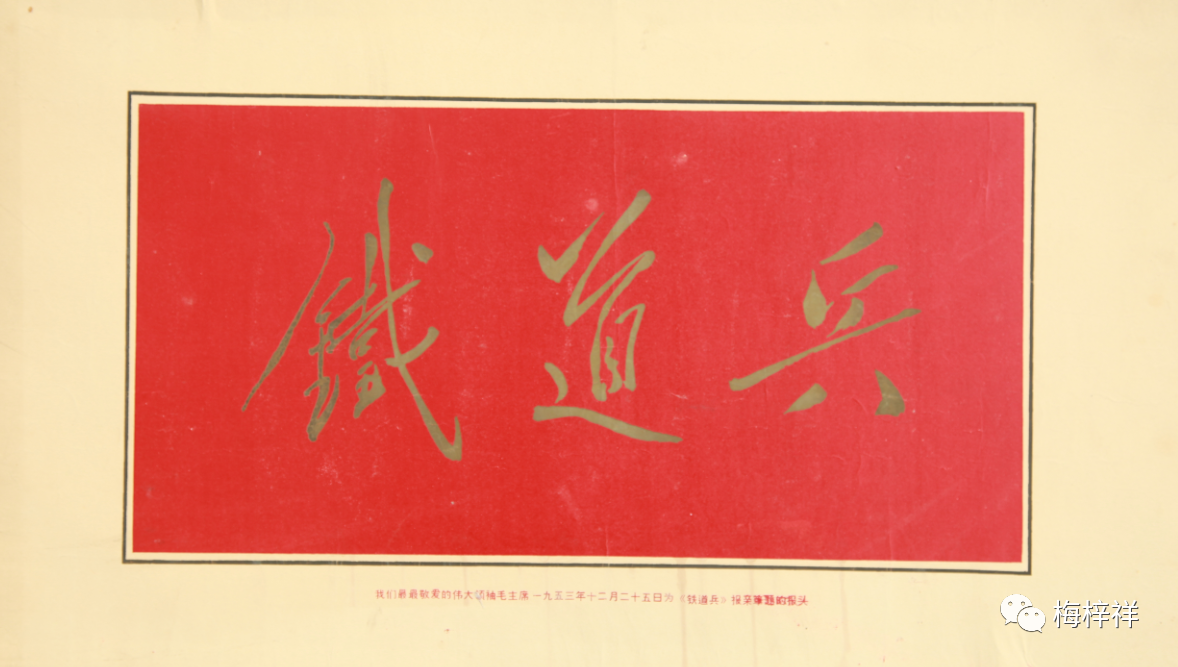 鐵道兵
我们最最敬爱的伟大领袖毛主席一九五三年十二月二十五日为《铁道兵》报亲笔题的报头
梅梓祥